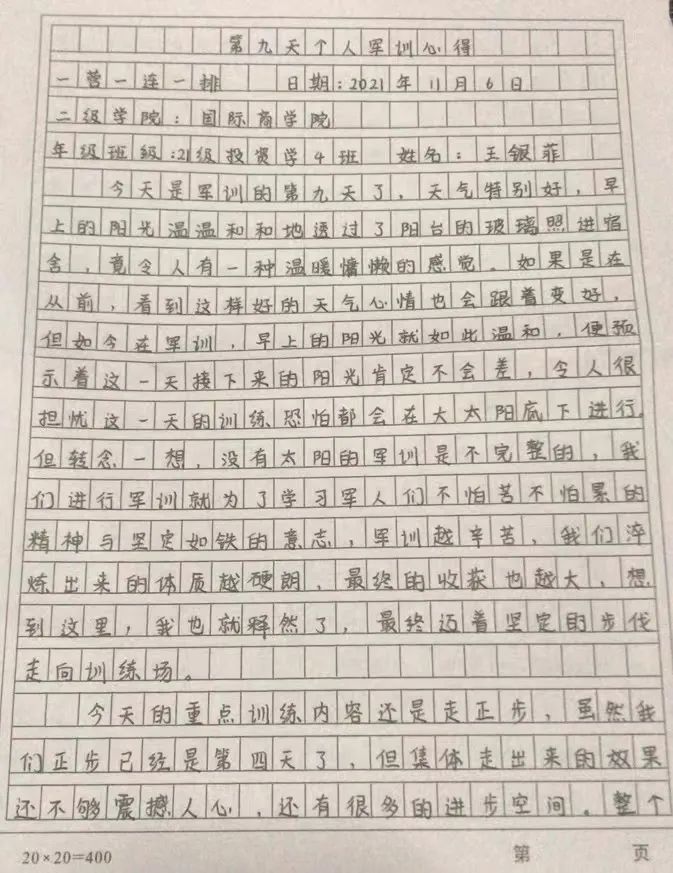 第九天个人军训心得
一营一连一排 日期:2021年11月6日
二级学院:国际商学院
年级班级:21级投资学4班 姓名:王银菲
今天是军训的第九天了,天气特别好,早
上的阳光温温和和地透过了阳台的玻璃照进宿
舍,竟令人有一种温暖慵懒的感觉。如果是在
从前,看到这样好的天气心情也会跟着变好,
但如今在军训,早上的阳光就如此温和,便预
示着这一天接下来的阳光肯定不会差,令人很
担忧这一天的训练恐怕都会在大太阳底下进行。
但转念一想,没有太阳的军训是不完整的,我
们进行军训就为了学习军人们不怕苦不怕累的
精神与坚定如铁的意志,军训越辛苦,我们淬
炼出来的体质越硬朗,最终的收获也越大,想
到这里,我也就释然了,最终迈着坚定的步伐
走向训练场。
今天的重点训练内容还是走正步,虽然我
们正步已经是第四天了,但集体走出来的效果
还不够震撼人心,还有很多的进步空间。整个
20×20=400 第 页